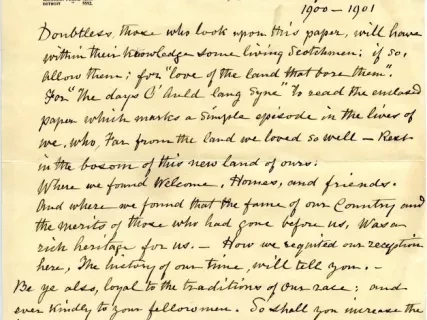 DETROIT " 5552.
1900 - 1901
Doubtless, those who look upon this paper, will have
within their knowledge some living Scotchmen; if so,
allow them; for "love of the land that bore them".
For "the days O' Auld lang Syne" to read the enclosed
paper which marks a simple episode in the lives of
we, who, Far from the land we loved so well - Rest
in the bosom of this new land of ours:
Where we found Welcome, Homes, and friends.
And where we found that the fame of our Country and
the merits of those who had gone before us, Was a
rich heritage for us. - How we requited our reception
here, The history of our time, will tell you. -
Be ye also, loyal to the traditions of our race; and
ever kindly to your fellowmen. So shall you increase the